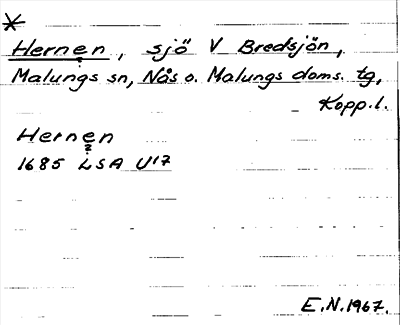 *
Hernen, sjö V Bredsjön,
Malungs sn, Nås o. Malungs doms. tg,
Kopp. l.
Hernen
?
1685 LSA U17
E.N. 1967.